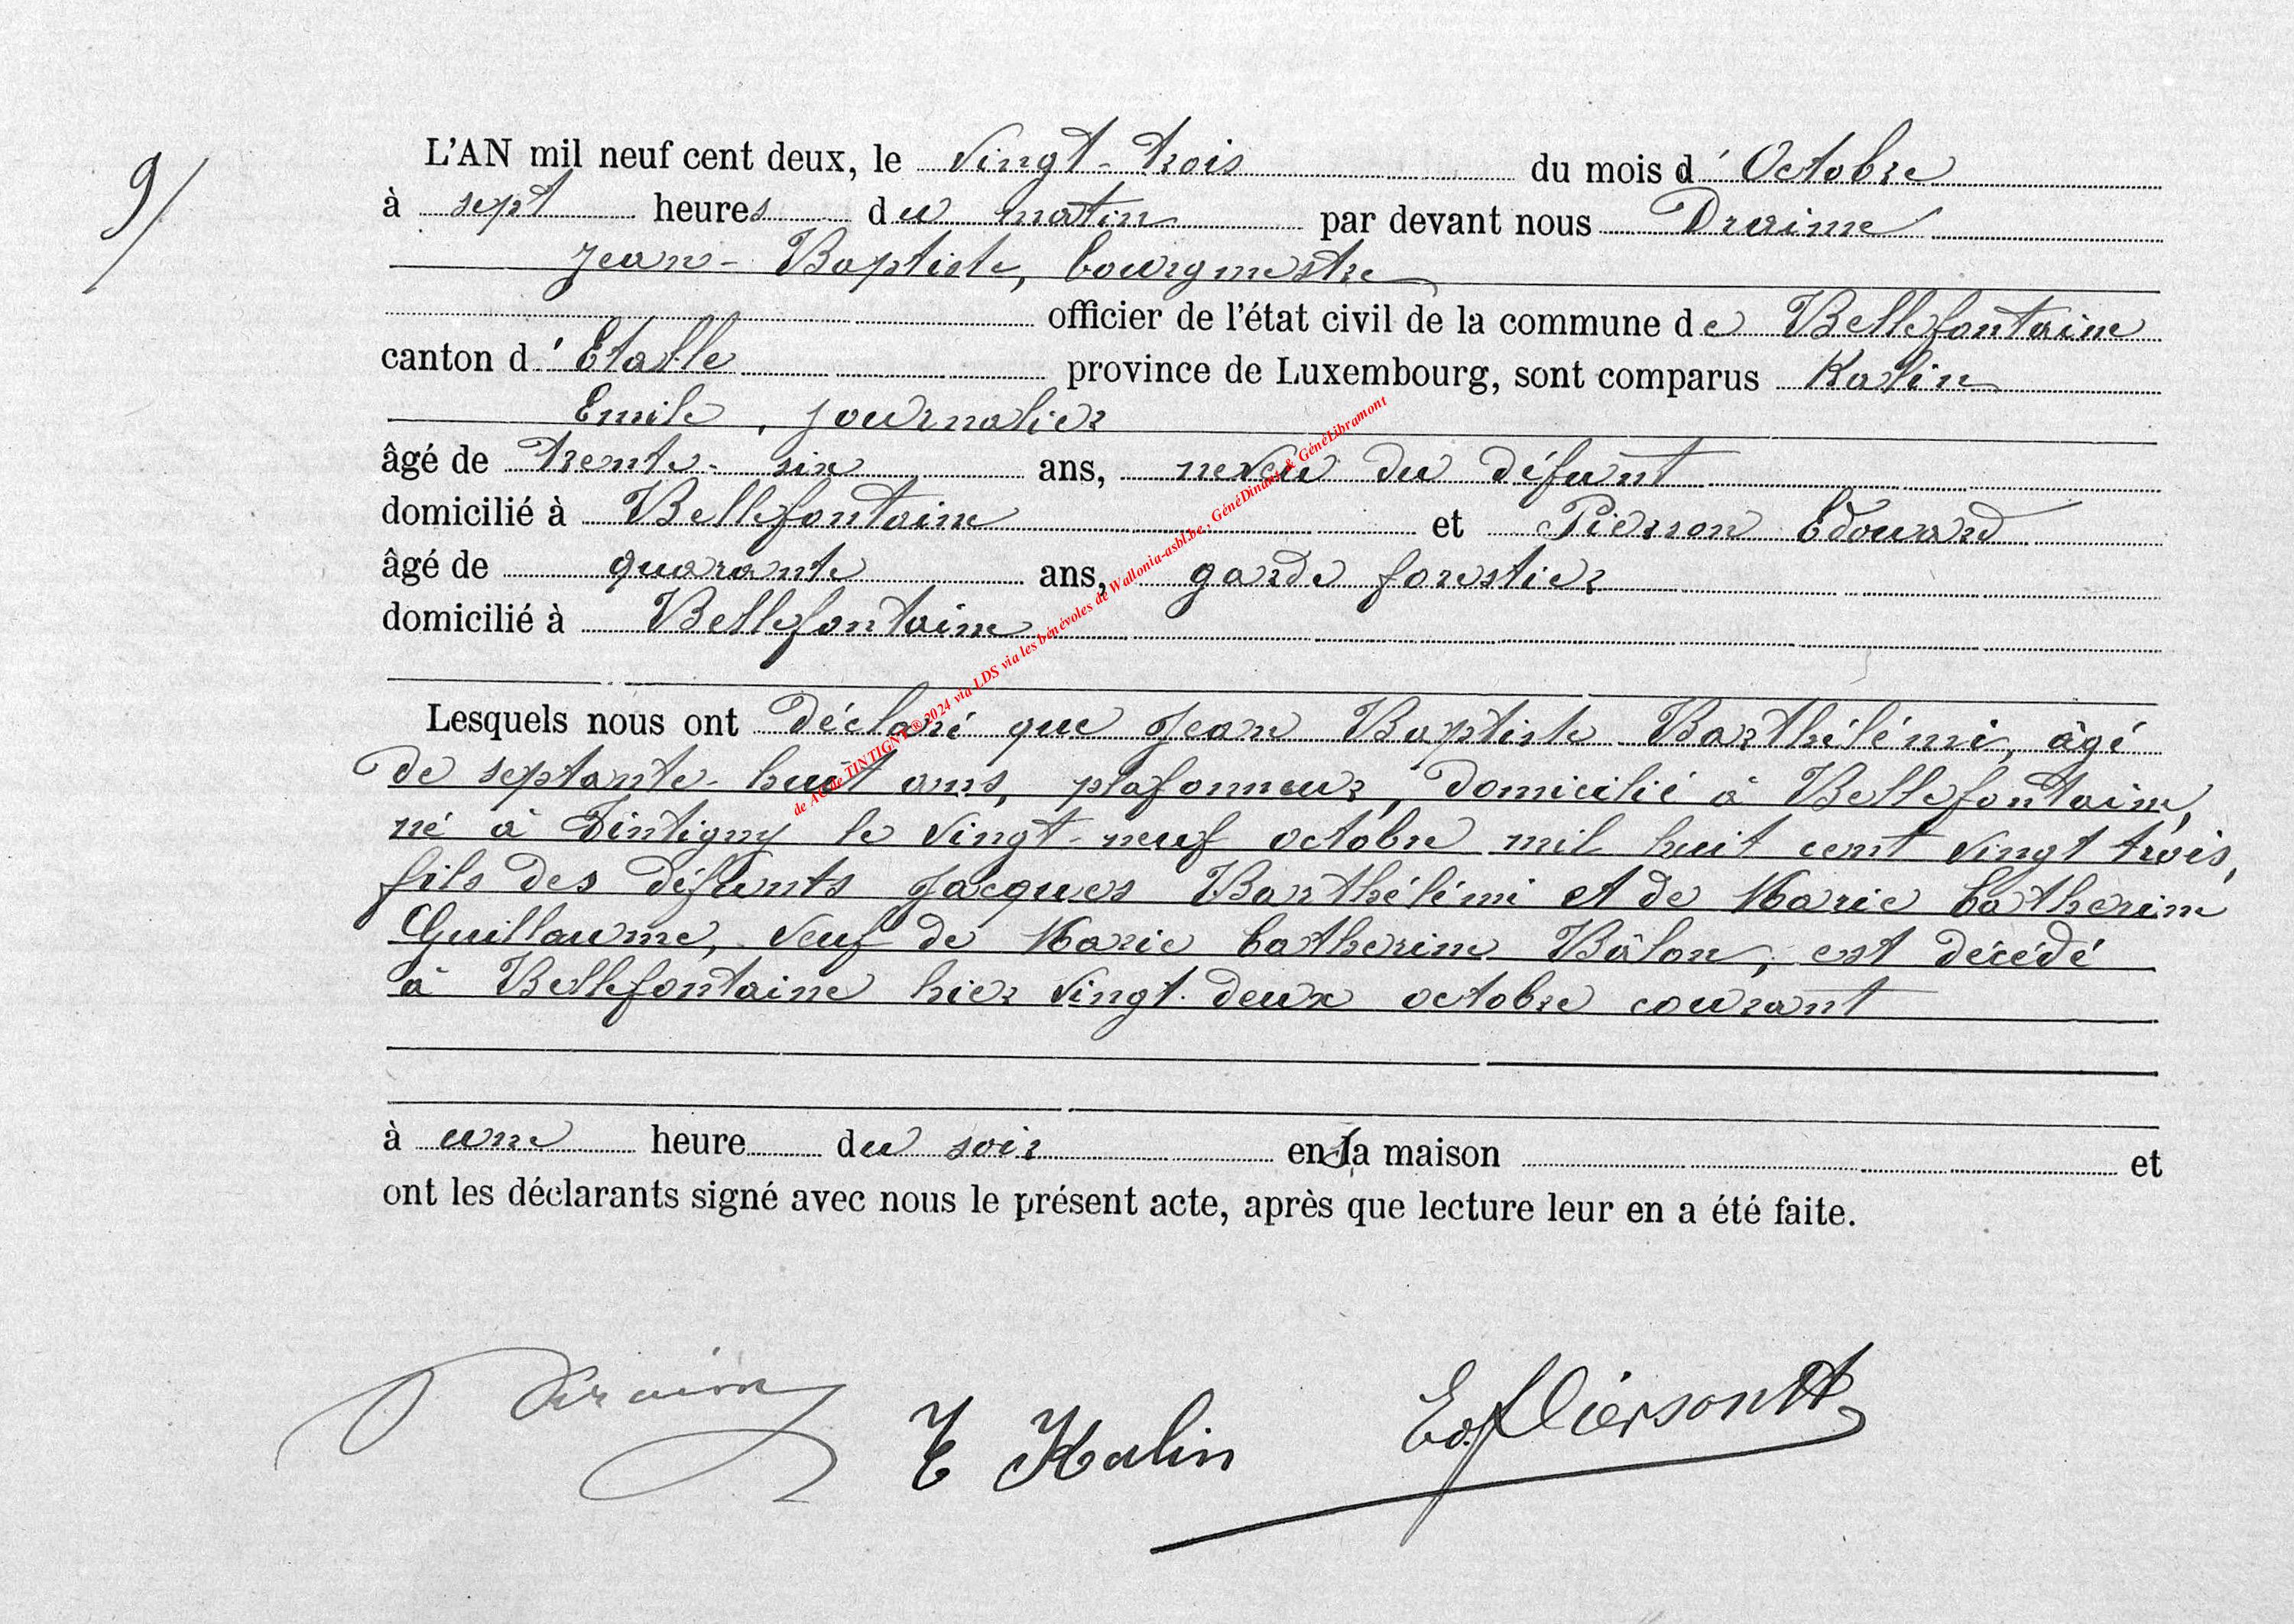 9/
L'AN mil neuf cent deux, le vingt-trois du mois d'Octobre
à sept heures du matin par devant nous Draime
Jean-Baptiste, bourgmestre
officier de l'état civil de la commune de Bellefontaine
canton d'Etalle province de Luxembourg, sont comparus Kalin
Emile, journalier
âgé de trente-six ans, neveu du défunt
domicilié à Bellefontaine et Pierson Edouard
âgé de quarante ans, garde forestier
domicilié à Bellefontaine
Lesquels nous ont déclaré que Jean Baptiste Barthélémi, âgé
de septante-huit ans, plafonneur, domicilié à Bellefontaine,
né à Tintigny le vingt-neuf octobre mil huit cent vingt trois,
fils des défunts Jacques Barthélémi et de Marie Catherine
Guillaume, veuf de Marie Catherine Bâlon, est décédé
à Bellefontaine hier vingt-deux octobre courant
à une heure du soir en sa maison et
ont les déclarants signé avec nous le présent acte, après que lecture leur en a été faite.
Draime
E Kalin
Ed Pierson
de AC de TINTIGNY ® 2024 via LDS via les bénévoles de Wallonia-asbl.be, GénéDinant & GénéLibramont